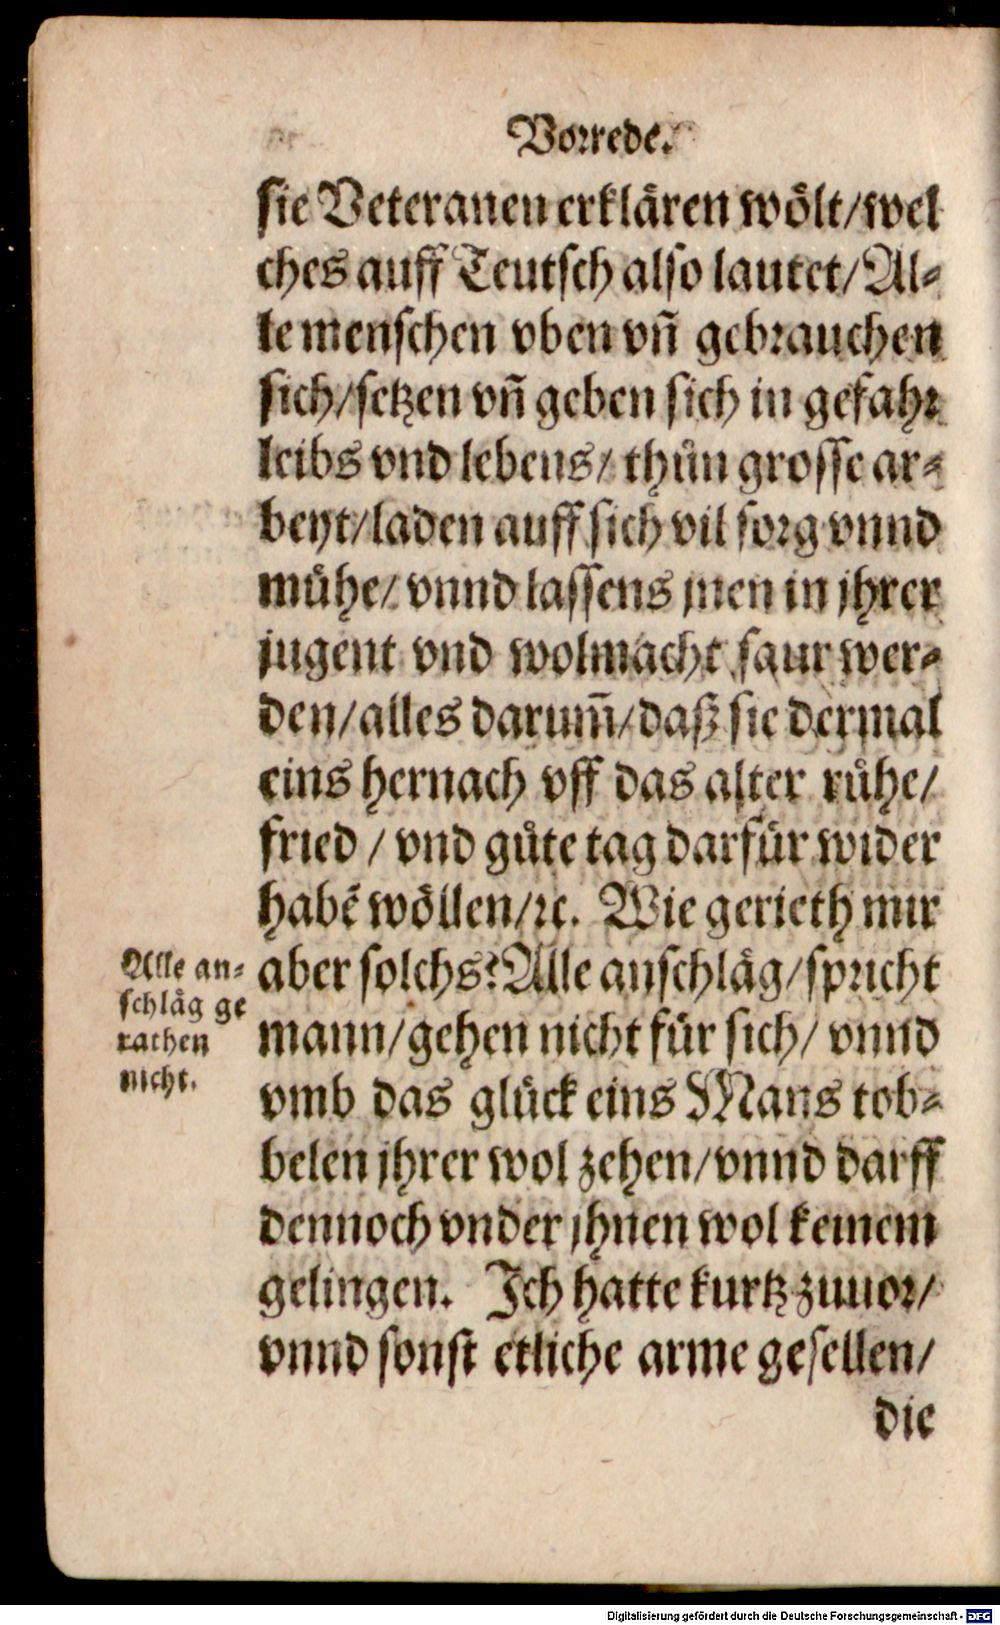 Vorrede.
sie Veteranen erklären wölt/wel
ches auff Teutsch also lautet/Al⸗
le menschen vben vñ gebrauchen
sich/setzen vñ geben sich in gefahr
leibs vnd lebens/ thůn grosse ar⸗
beyt/laden auff sich vil sorg vnnd
můhe/ vnnd lassens jnen in jhrer
jugent vnd wolmacht saur wer⸗
den/alles darum̃/daß sie dermal
eins hernach vff das alter růhe/
fried / vnd gůte tag darfür wider
habẽ wöllen/ꝛc. Wie gerieth mir
aber solchs? Alle anschläg/spricht
mann/gehen nicht für sich/ vnnd
vmb das glück eins Mans tob⸗
belen jhrer wol zehen/vnnd darff
dennoch vnder jhnen wol keinem
gelingen. Ich hatte kurtz zuuor/
vnnd sonst etliche arme gesellen/
die
Alle an⸗
schläg ge
rathen
nicht.
Digitalisierung gefördert durch die Deutsche Forschungsgemeinschaft - DFG